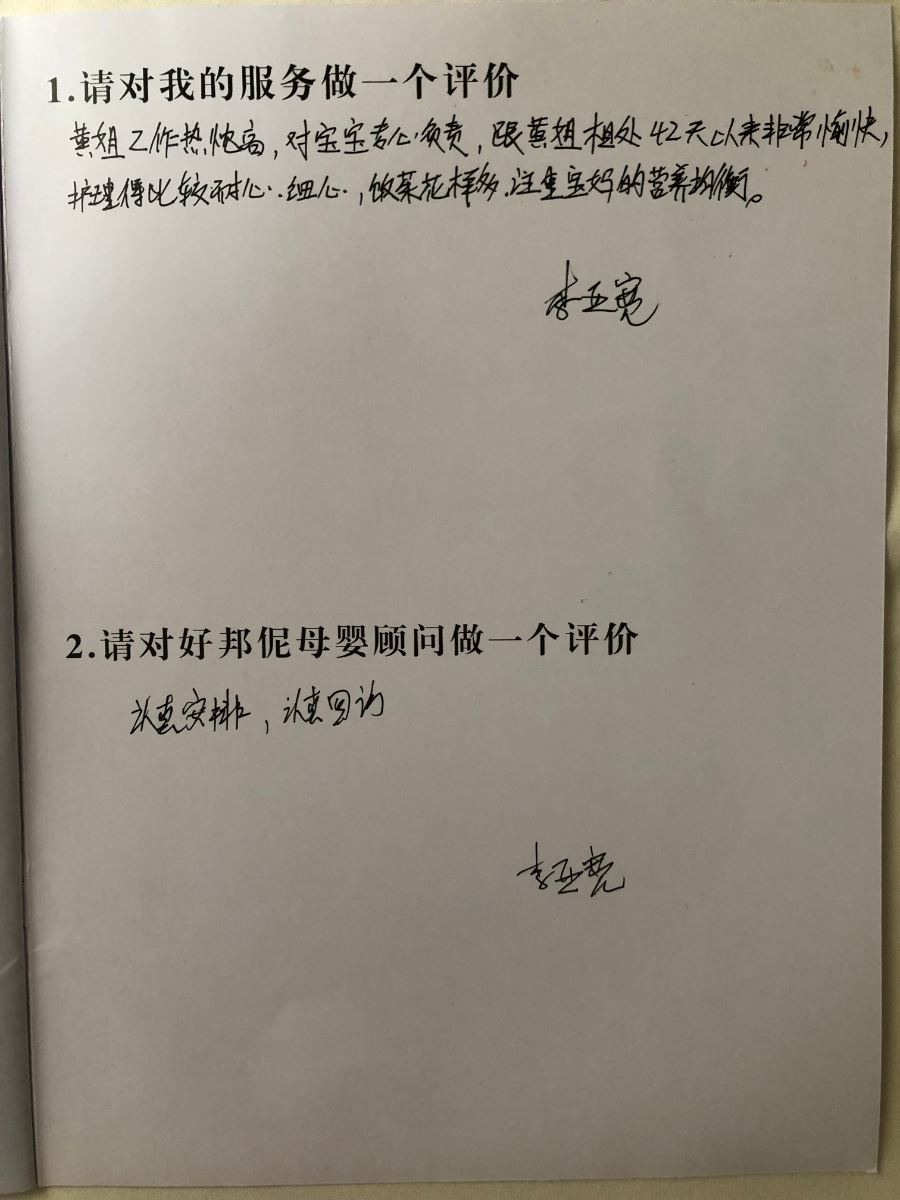 1.请对我的服务做一个评价
黄姐工作热忱高，对宝宝专心负责，跟黄姐相处42天以来非常愉快，
护理得比较耐心.细心.，饭菜花样多.注重宝妈的营养均衡。
李亚宽
2.请对好邦伲母婴顾问做一个评价
认真安排，认真回访
李亚宽